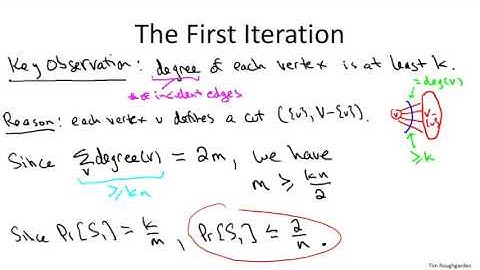 The First Iteration
Key Observation: degree of each vertex is at least k.
# of incident edges
= deg(v)
Reason: each vertex v defines a cut ({v}, V-{v}).
v
V-{v}
≥k
Since ∑_v degree(v) = 2m, we have
≥kn
m ≥ kn/2
Since Pr[S₁] = k/m, Pr[S₁] ≤ 2/n.
Tim Roughgarden